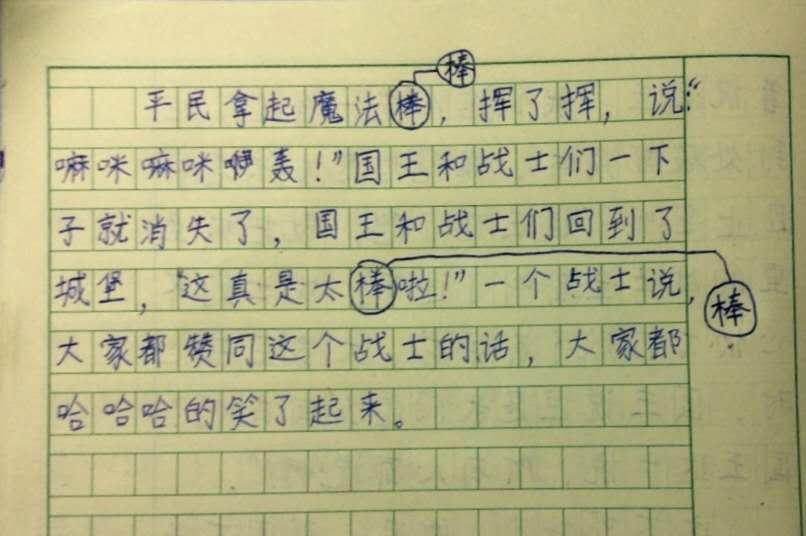 棒
平民拿起魔法棒，挥了挥，说：“
嘛咪嘛咪轰！”国王和战士们一下
子就消失了，国王和战士们回到了
城堡，“这真是太棒啦！”一个战士说，
棒
大家都赞同这个战士的话，大家都
哈哈哈的笑了起来。